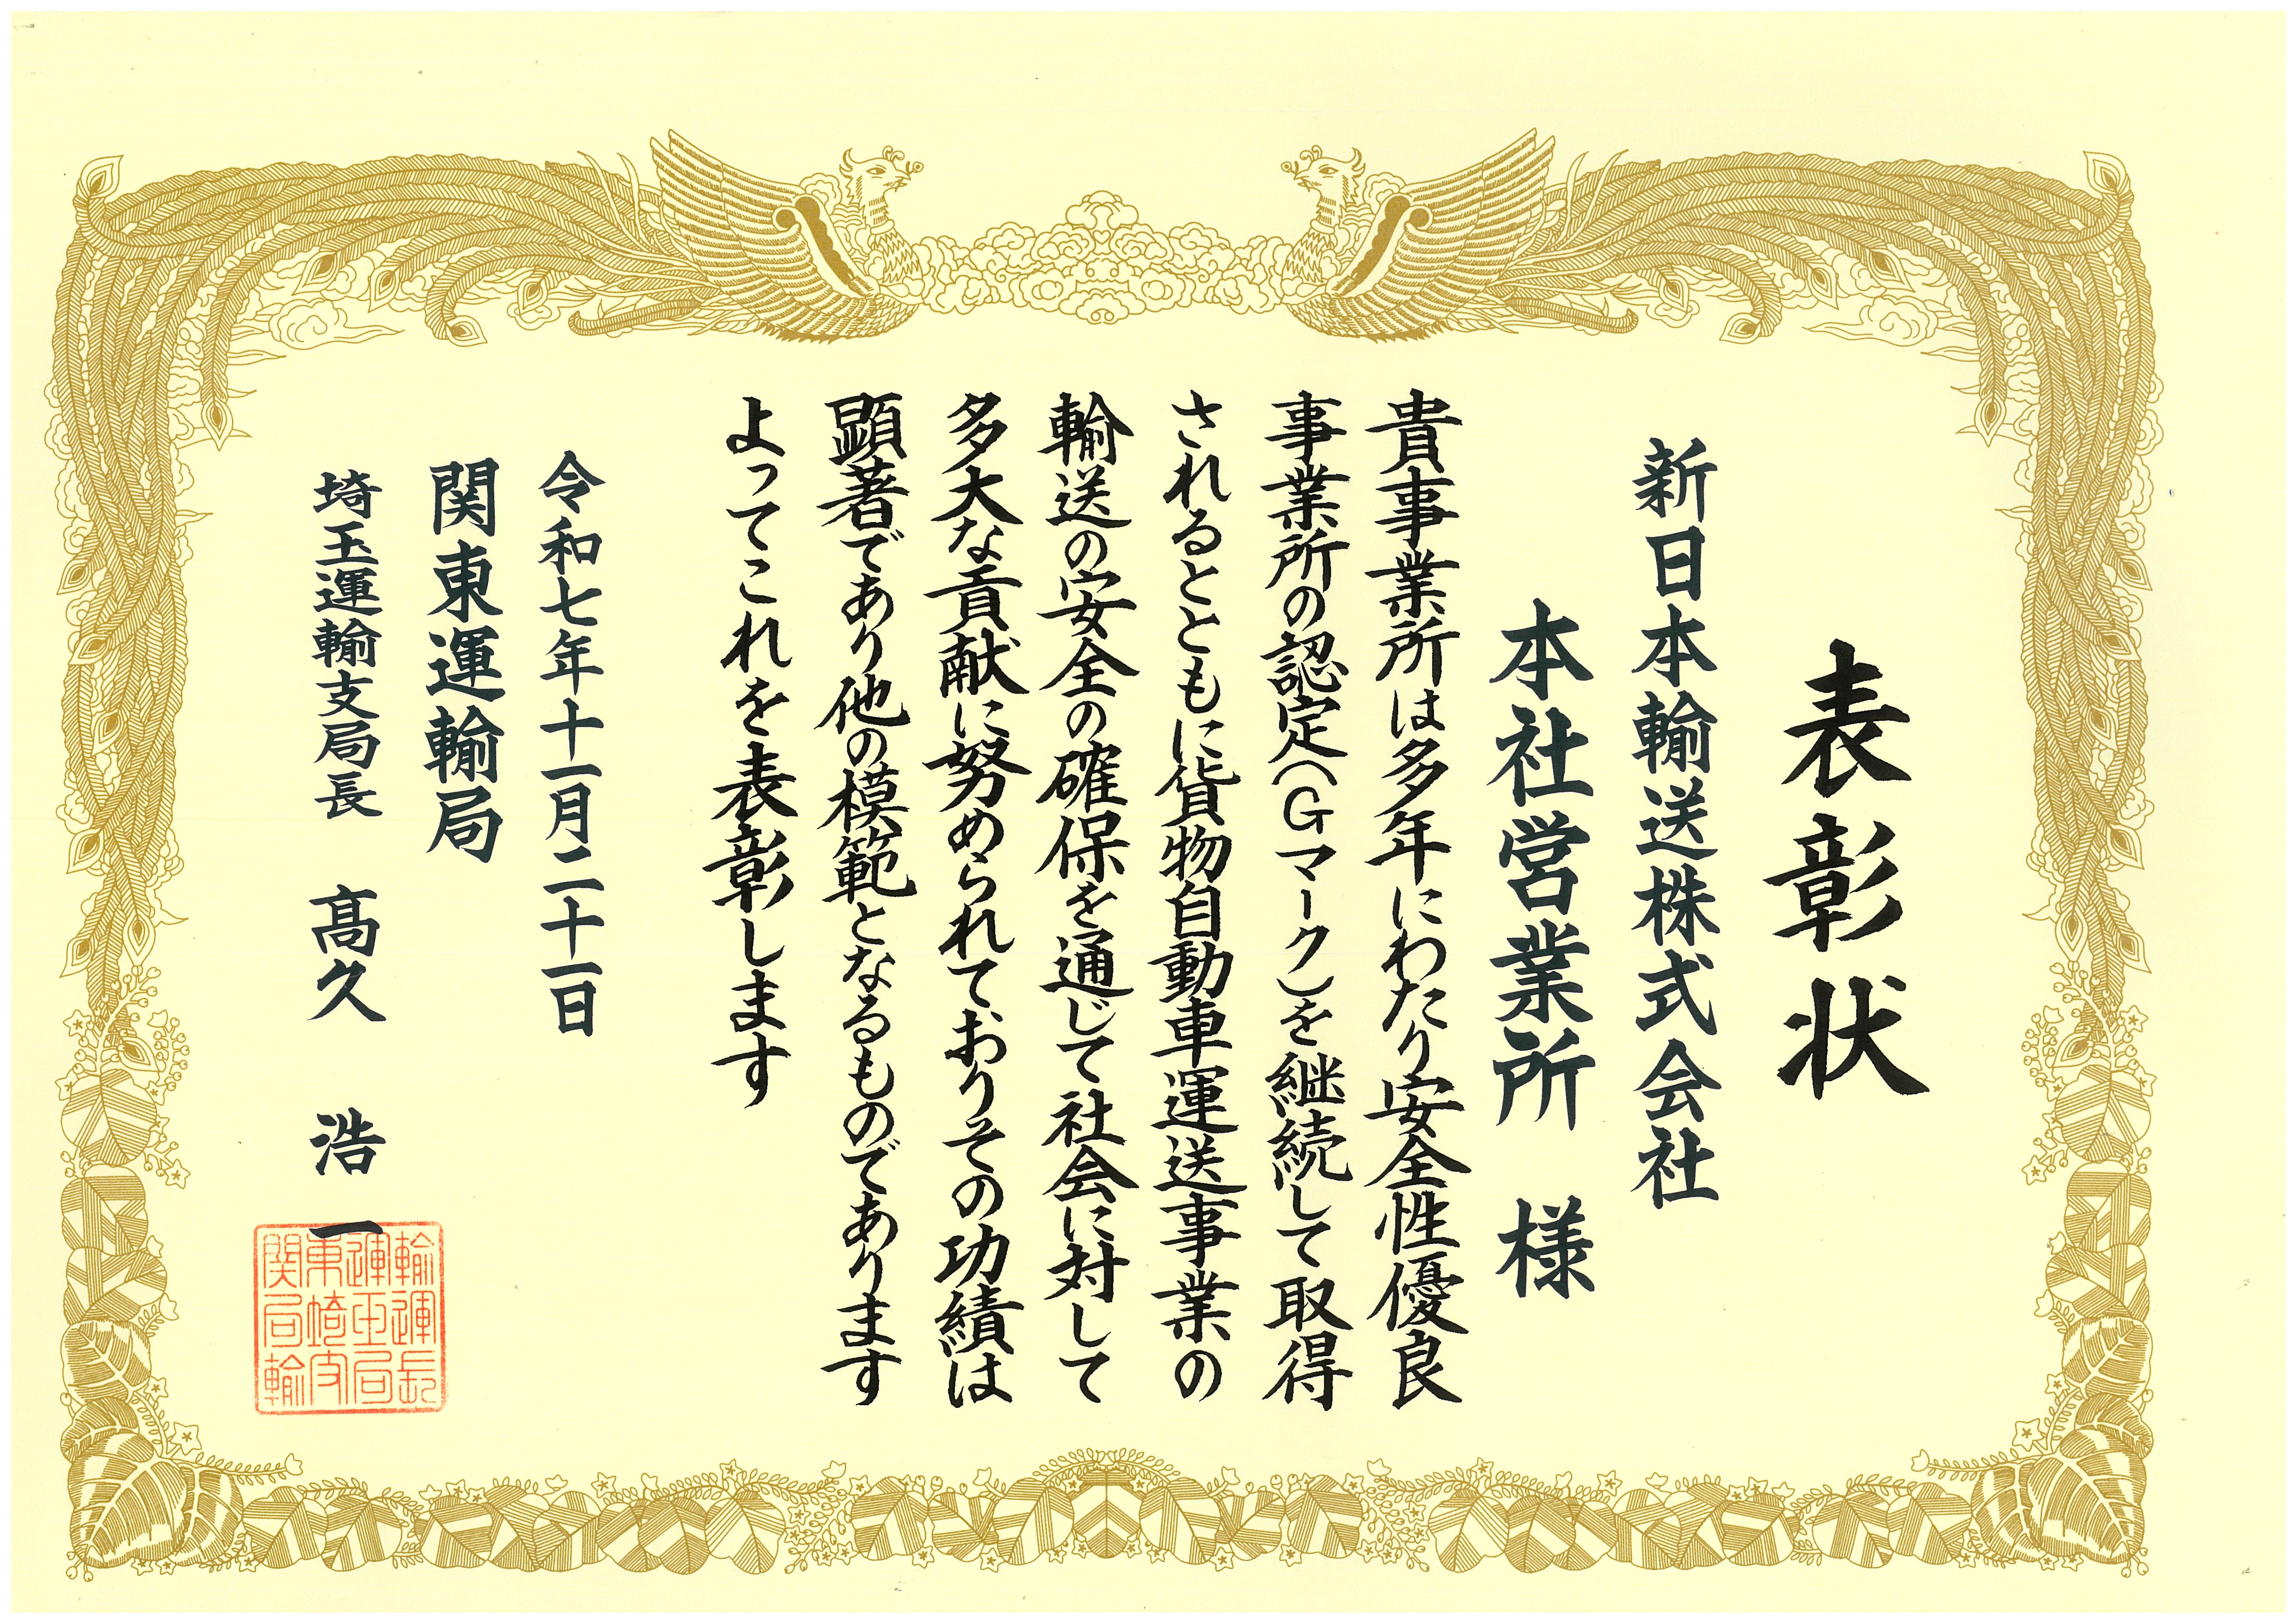 表彰状
新日本輸送株式会社
本社営業所 様
貴事業所は多年にわたり安全性優良
事業所の認定(Gマーク)を継続して取得
されるとともに貨物自動車運送事業の
輸送の安全の確保を通じて社会に対して
多大な貢献に努められておりその功績は
顕著であり他の模範となるものであります
よってこれを表彰します
令和七年十一月二十一日
関東運輸局
埼玉運輸支局長 髙久 浩一
輸運長
運玉局
東埼支
関局輸